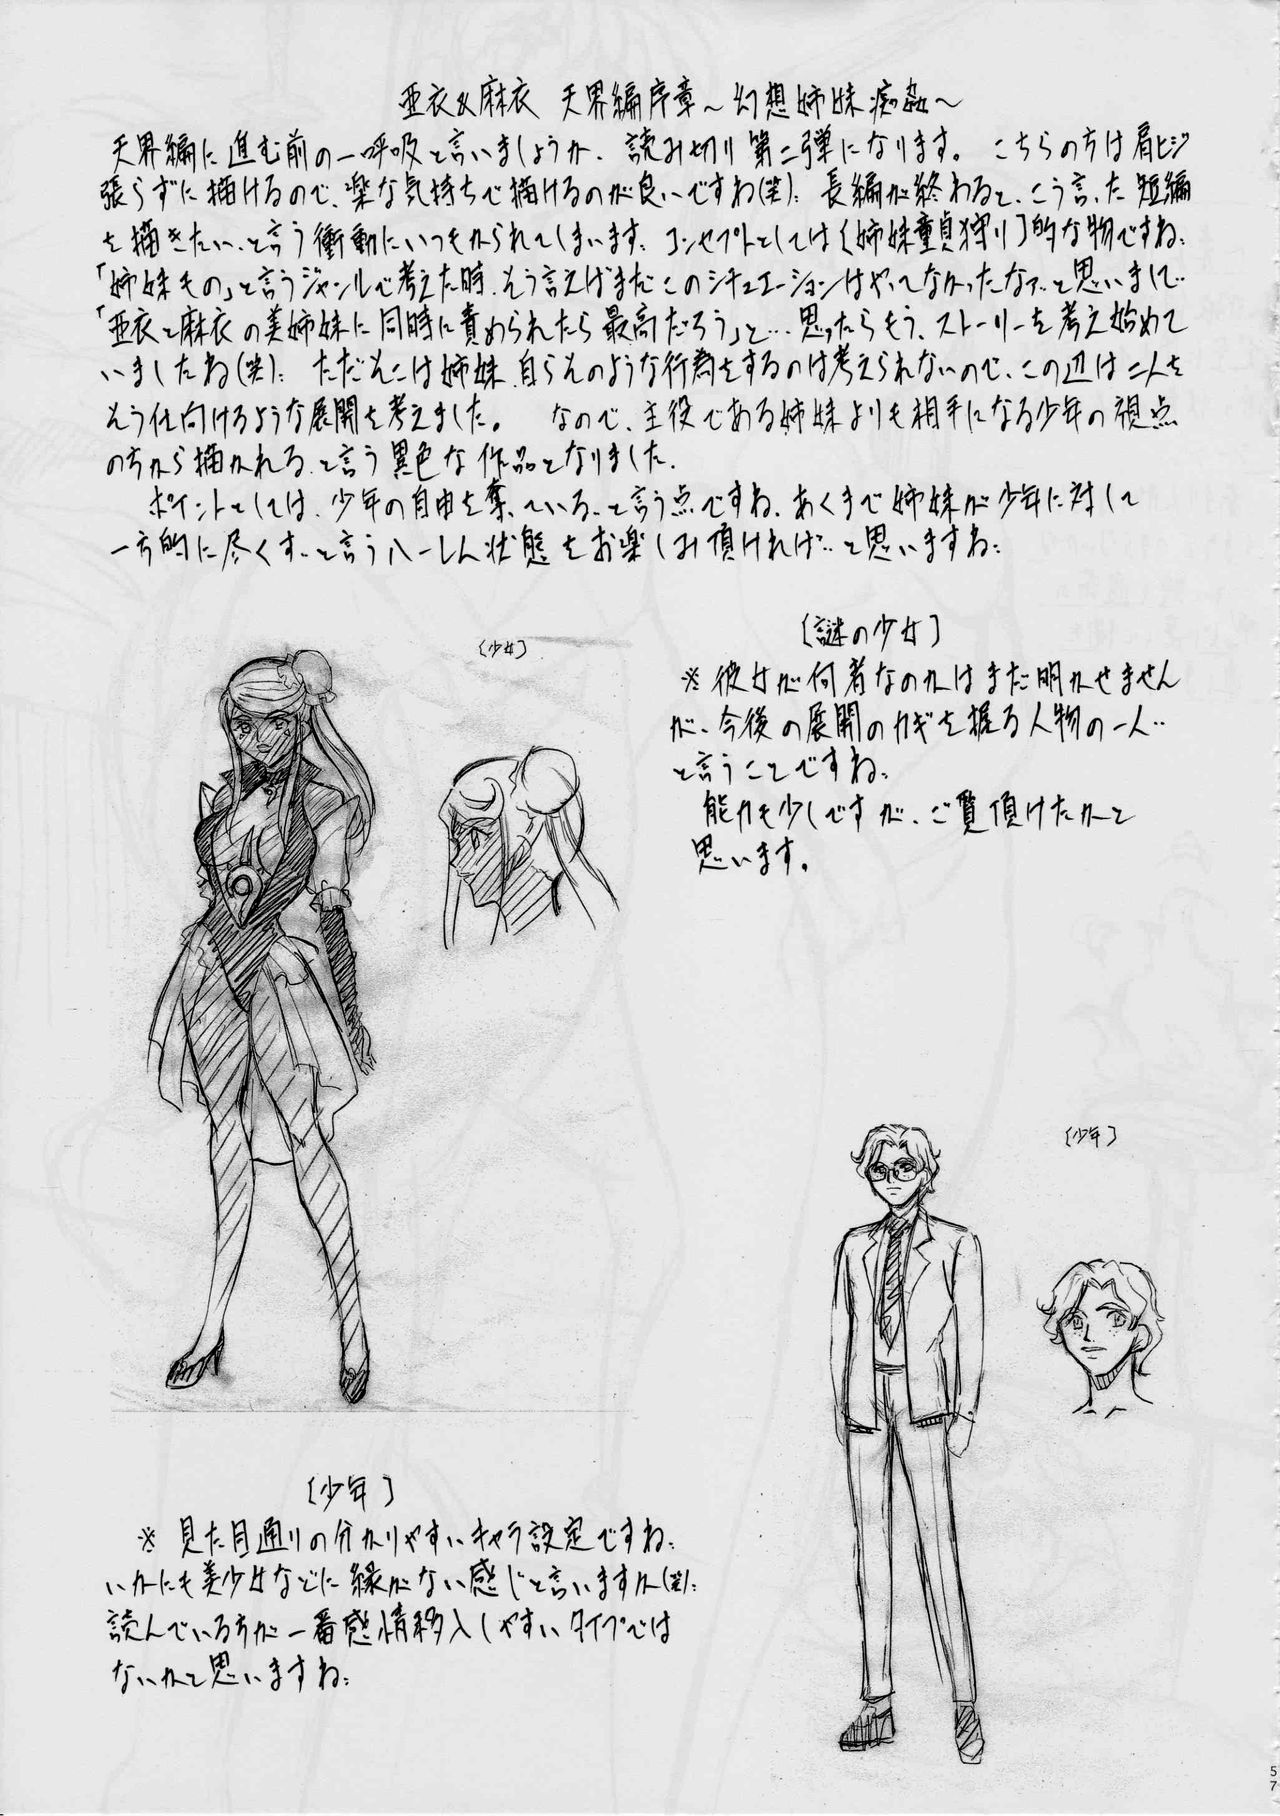 亜衣&麻衣 天界編序章~幻想姉妹痴姦~
天界編に進む前の一呼吸と言いましょうか、読み切り第二弾になります。 こちらの方は肩ヒジ
張らずに描けるので、楽な気持ちで描けるのが良いですね(笑): 長編が終わると、こう言った短編
を描きたい、と言う衝動にいつもかられてしまいます: コンセプトとしては〔姉妹童貞狩り〕的な物ですね:
「姉妹もの」と言うジャンルで考えた時、そう言えばまだこのシチュエーションはやってなかったなァ…と思いまして…
「亜衣と麻衣の美姉妹に同時に責められたら最高だろう」と…思ったらもう、ストーリーを考え始めて
いましたね(笑): ただそこは姉妹、自らそのような行為をするのは考えられないので、この辺は二人を
そう仕向けるような展開を考えました。 なので、主役である姉妹よりも相手になる少年の視点
の方から描かれる、と言う異色な作品となりました.
ポイントとしては、少年の自由を奪っている、と言う点ですね、あくまで姉妹が少年に対して
一方的に尽くす…と言うハーレム状態をお楽しみ頂ければ…と思いますね:
〔少女〕
〔謎の少女〕
※彼女が何者なのかはまだ明かせません
が、今後の展開のカギを握る人物の一人…
と言うことですね:
能力も少しですが、ご覧頂けたかと
思います。
〔少年〕
〔少年〕
※見た目通りの分かりやすいキャラ設定ですね:
いかにも美少女などに縁がない感じと言いますか(笑):
読んでいる方が一番感情移入しやすいタイプでは
ないかと思いますね:
57